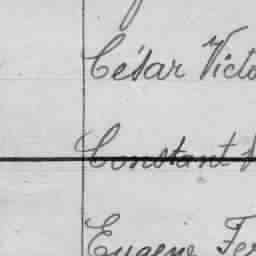 César Victo
Constant
Eugène Fer